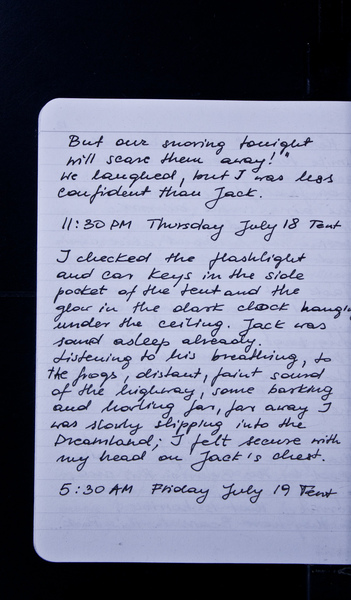 But our snoring tonight
will scare them away!"
We laughed, but I was less
confident than Jack.
11:30 PM Thursday July 18 Tent
I checked the flashlight
and car keys in the side
pocket of the tent and the
glow in the dark clock hangin
under the ceiling. Jack was
sound asleep already.
Listening to his breathing, to
the frogs, distant, faint sound
of the highway, some barking
and howling far, far away I
was slowly slipping into the
Dreamland; I felt secure with
my head on Jack's chest.
5:30 AM Friday July 19 Tent